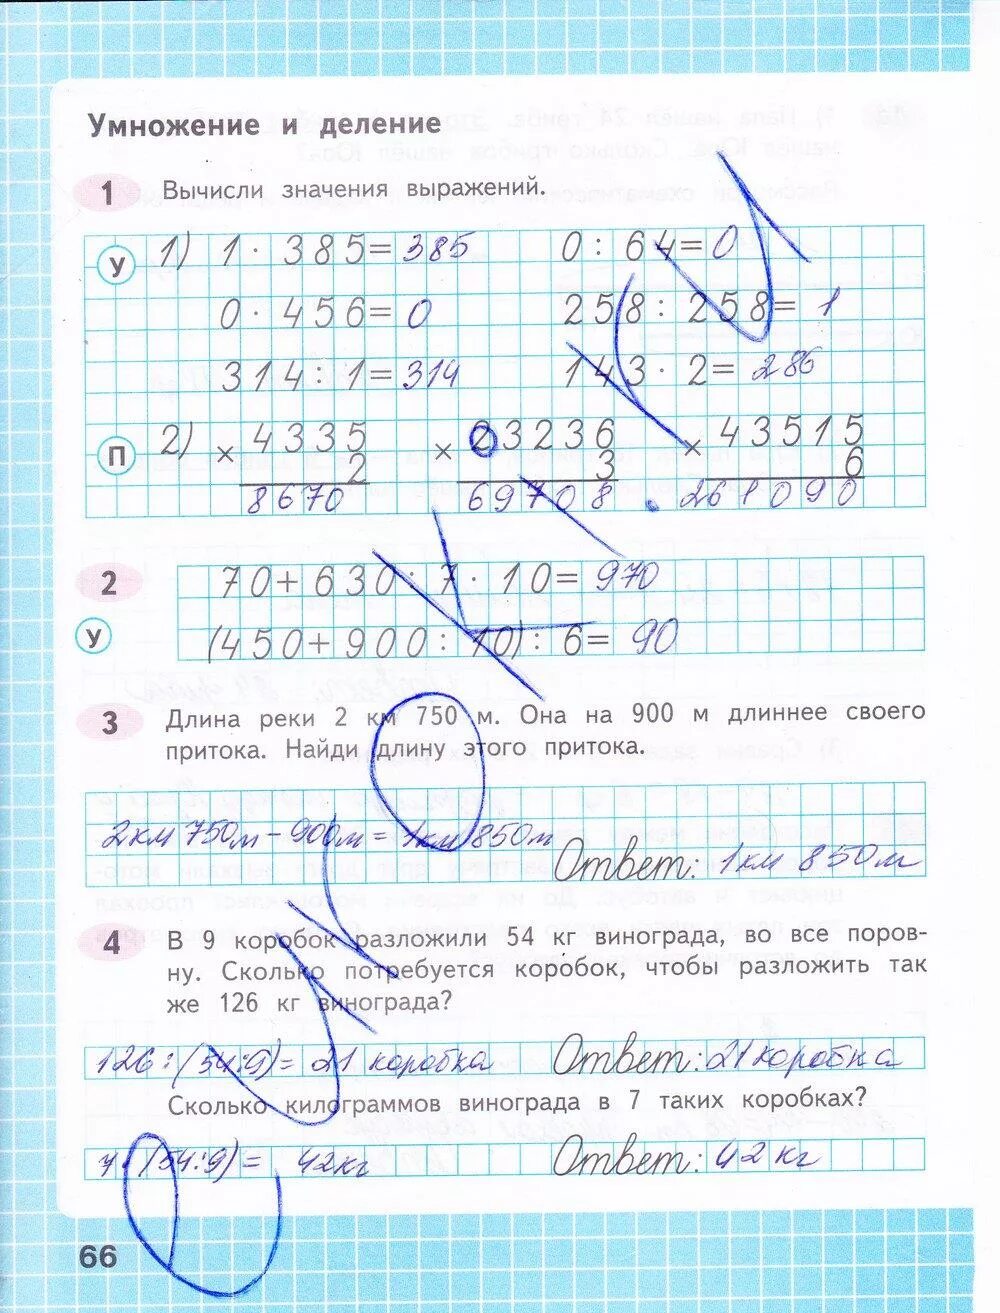 Умножение и деление
1 Вычисли значения выражений.
У 1) 1 · 385 = 385 0 : 64 = 0
0 · 456 = 0 258 : 258 = 1
314 : 1 = 314 143 · 2 = 286
П 2) × 4335 × 23236 × 43515
2 3 6
8670 69708 261090
2 70 + 630 : 7 · 10 = 970
У (450 + 900 : 10) : 6 = 90
3 Длина реки 2 км 750 м. Она на 900 м длиннее своего
притока. Найди длину этого притока.
2км 750м - 900м = 1км 850м
Ответ: 1км 850м
4 В 9 коробок разложили 54 кг винограда, во все поров-
ну. Сколько потребуется коробок, чтобы разложить так
же 126 кг винограда?
126 : (54:9) = 21 коробка Ответ: 21 коробка
Сколько килограммов винограда в 7 таких коробках?
7 · (54:9) = 42кг Ответ: 42 кг
66